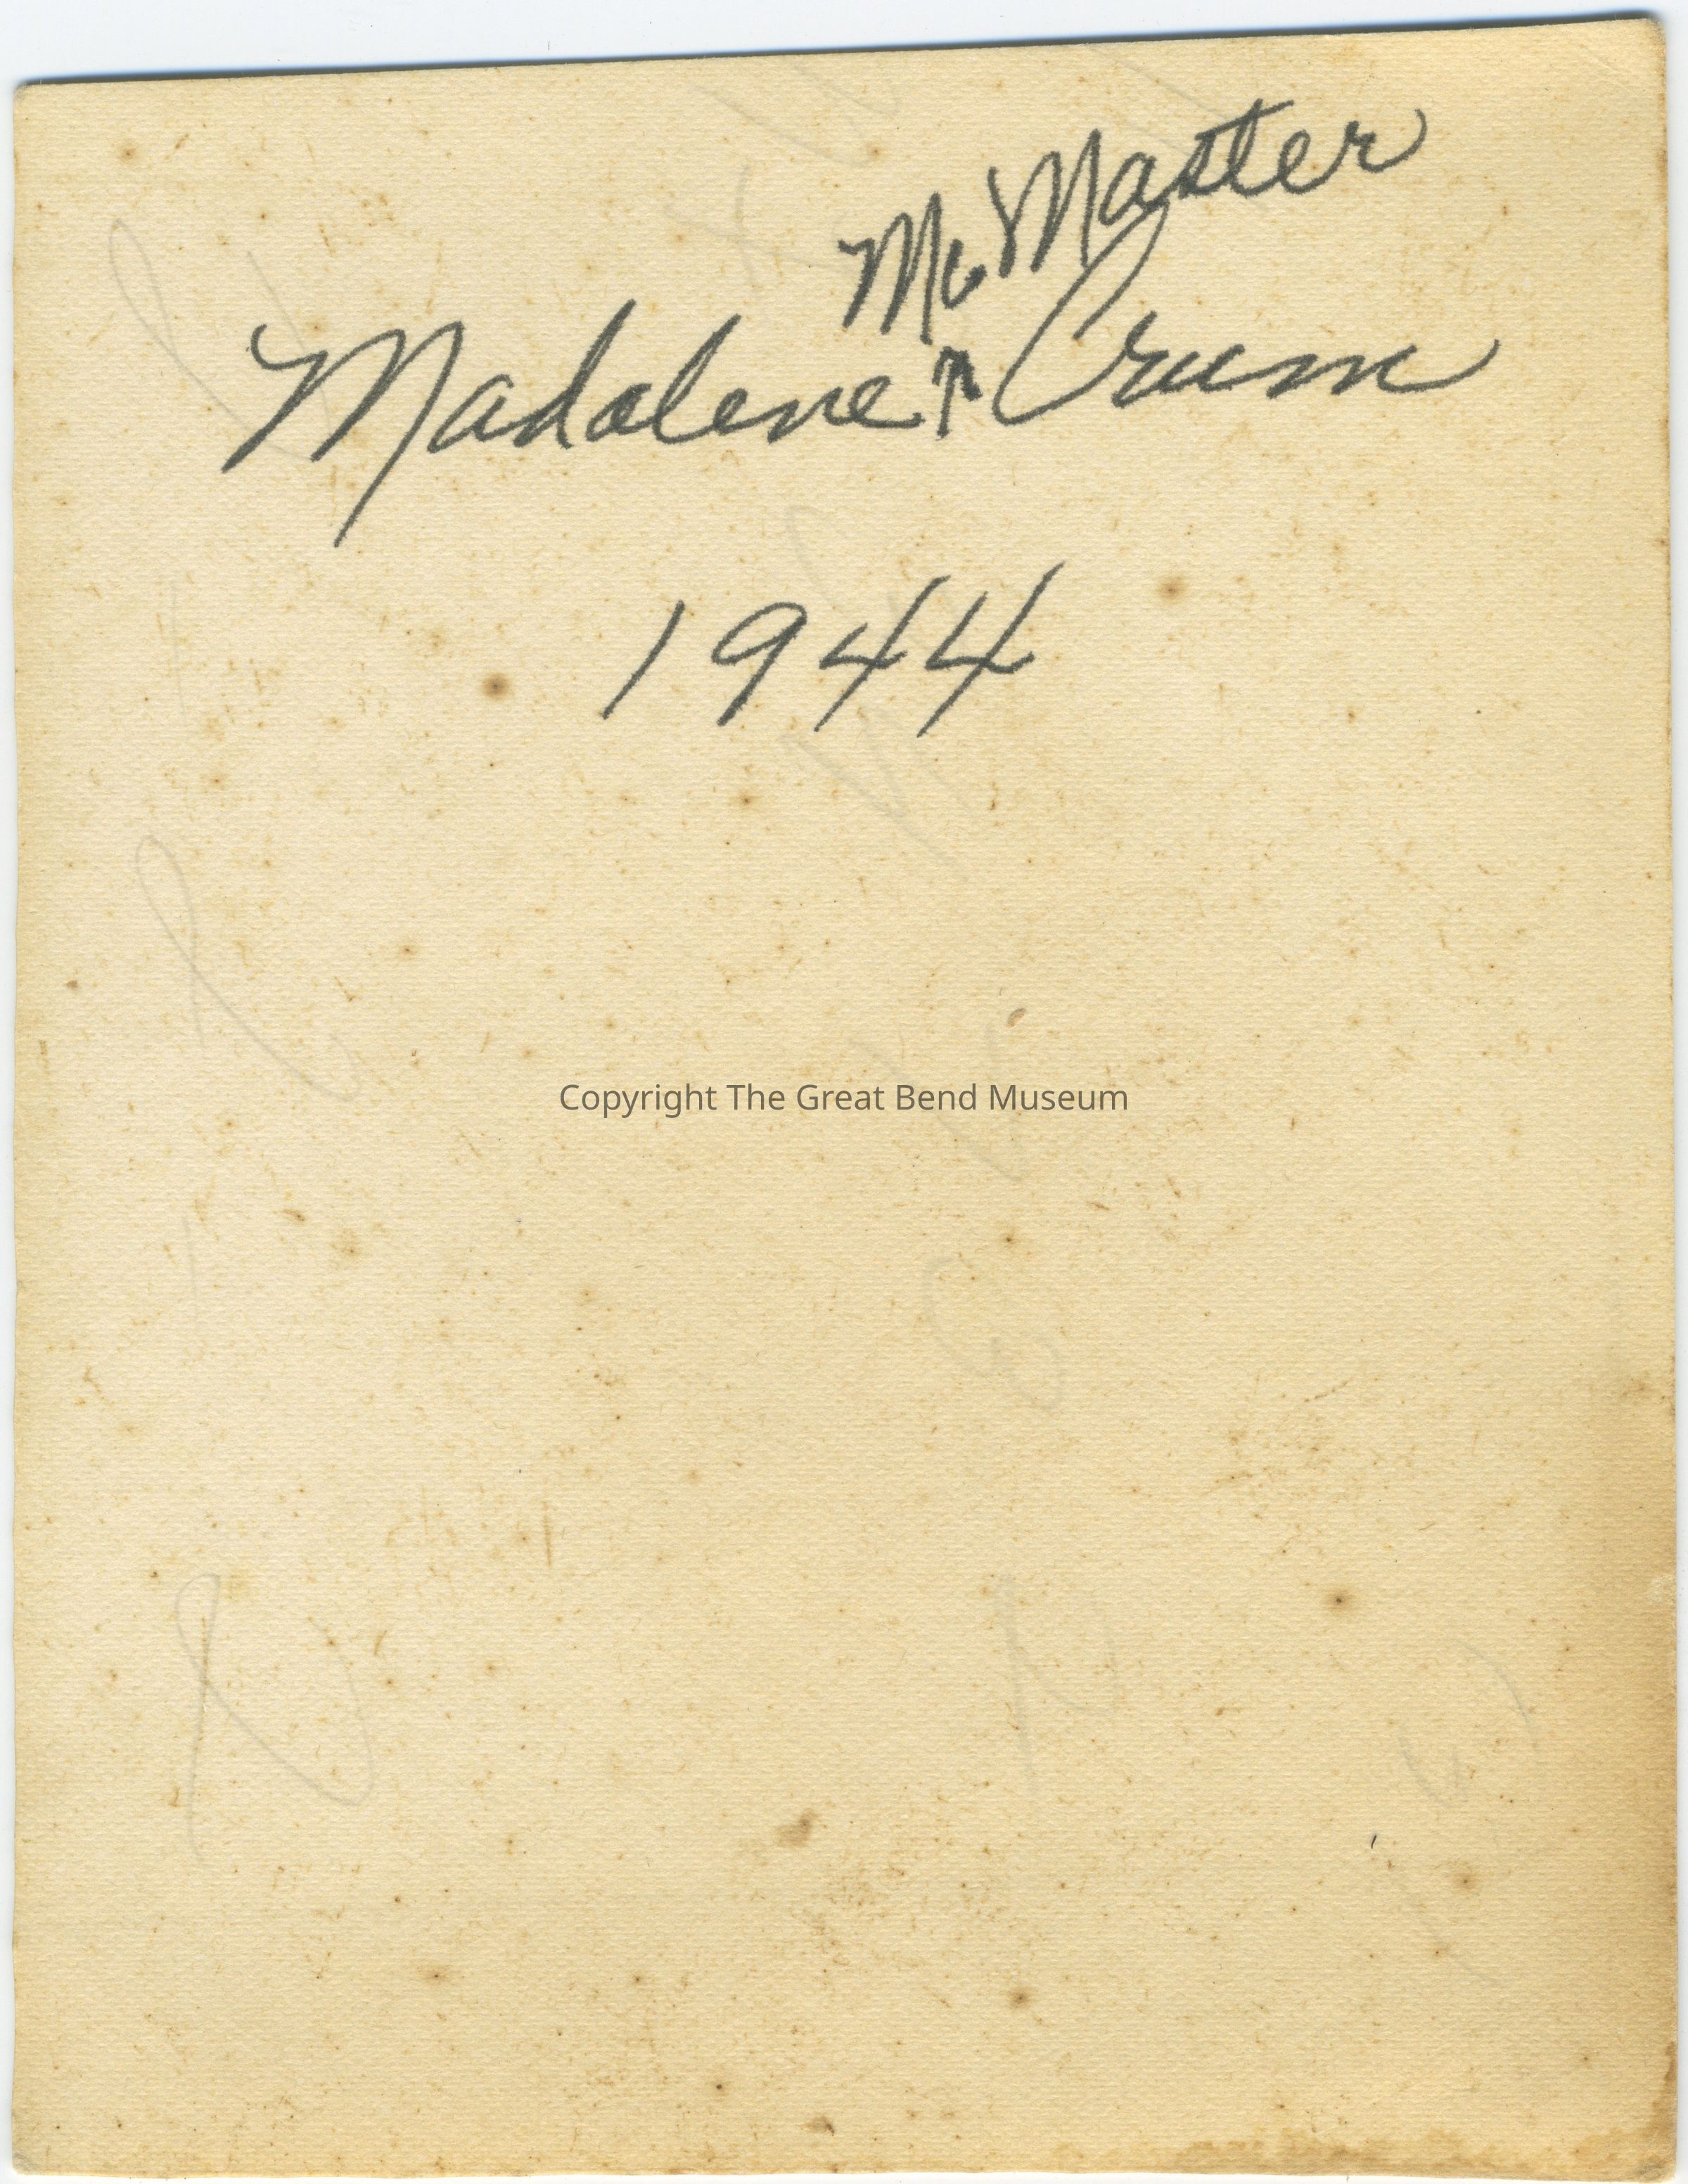 Mc Master
Madalene ↑ Crum
1944
Copyright The Great Bend Museum